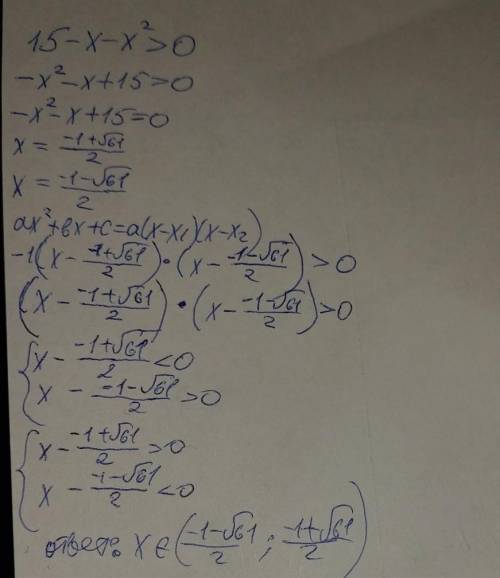 15-x-x²>0
-x²-x+15>0
-x²-x+15=0
x = (-1+√61)/2
x = (-1-√61)/2
ax²+bx+c=a(x-x₁)(x-x₂)
-1(x - (-1+√61)/2)•(x - (-1-√61)/2)>0
(x - (-1+√61)/2)•(x - (-1-√61)/2)>0
{x - (-1+√61)/2<0
x - (-1-√61)/2>0
{x - (-1+√61)/2>0
x - (-1-√61)/2<0
ответ: x∈((-1-√61)/2; (-1+√61)/2)